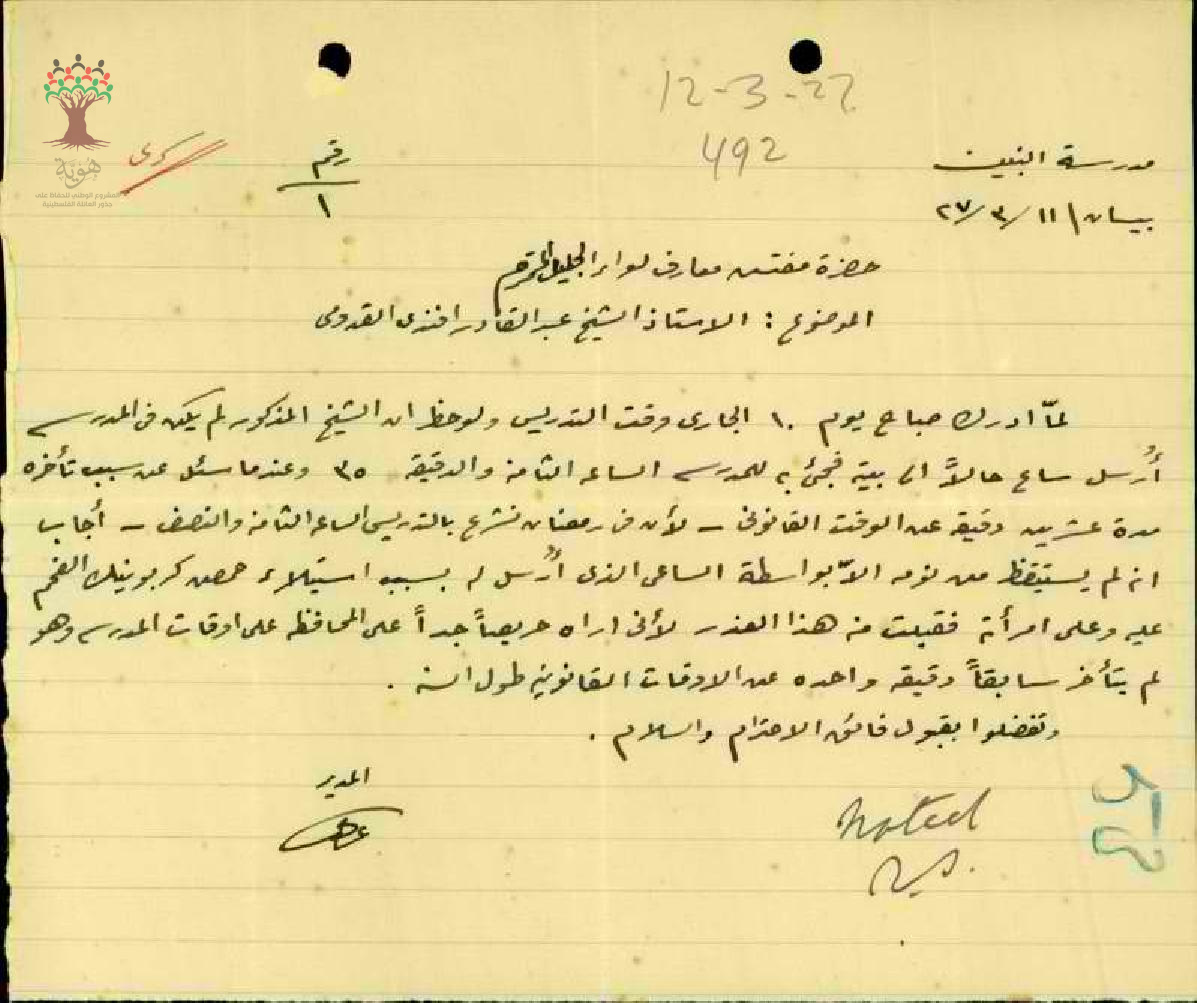 12-3-27
492
هُويَّة
المشروع الوطني للحفاظ على
جذور العائلة الفلسطينية
سري
رقم
١
مدرسة البنين
بيسان ١١/٣/٢٧
حضرة مفتش معارف لواء الجليل المحترم
الموضوع : الاستاذ الشيخ عبد القادر افندي القدومي
لمّا ادرك صباح يوم ١٠ الجاري وقت التدريس ولوحظ ان الشيخ المذكور لم يكن في المدرسة
أُرسل ساع حالاً الى بيته فجئ به للمدرسة الساعه الثامنة والدقيقة ٣٥ وعندما سئل عن سبب تأخره
مدة عشرين دقيقه عن الوقت القانوني – لأن في رمضان نشرع بالتدريس الساعه الثامنة والنصف – أجاب
انه لم يستيقظ من نومه الاّ بواسطة الساعي الذي أُرسل له بسبب استيلاء حمض كربونيك الفحم
عليه وعلى امرأته فقبلت منه هذا العذر لأني اراه حريصاً جداً على المحافظة على اوقات المدرسه وهو
لم يتأخر سابقاً دقيقه واحده عن الاوقات القانونية طول السنة .
وتفضلوا بقبول فائق الاحترام والسلام .
المدير
noted